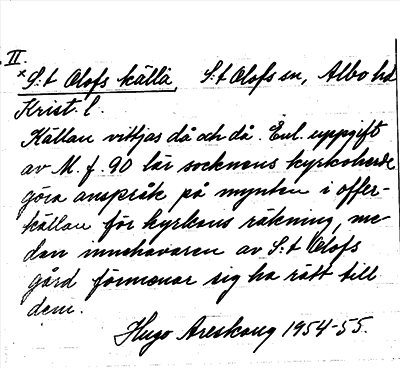 II.
*S:t Olofs källa, S:t Olofs sn, Albo hd
Krist. l.
Källan vittjas då och då. Enl. uppgift
av M. f. 90 lär socknens kyrkoherde
göra anspråk på mynten i offer-
källan för kyrkans räkning, me-
dan innehavaren av S:t Olofs
gård förmenar sig ha rätt till
dem.
Hugo Areskoug 1954-55.